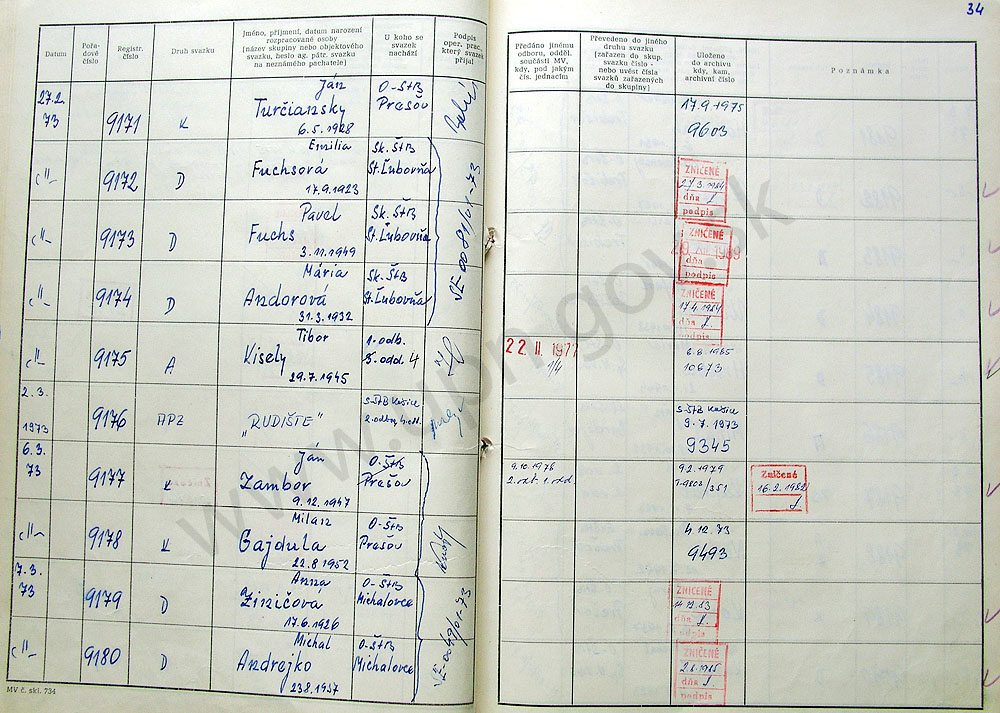 34
Datum
Pořadové číslo
Registr. číslo
Druh svazku
Jméno, příjmení, datum narození
rozpracované osoby
(název skupiny nebo objektového
svazku, heslo ag. pátr. svazku
na neznámého pachatele)
U koho se
svazek
nachází
Podpis
oper. prac.,
který svazek
přijal
Předáno jinému
odboru, odděl.
součásti MV,
kdy, pod jakým
čís. jednacím
Převedeno do jiného
druhu svazku
(zařazen do skup.
svazku číslo -
nebo uvést čísla
svazků zařazených
do skupiny)
Uloženo
do archivu
kdy, kam,
archivní číslo
Poznámka
27.2.
73
9171
K
Ján
Turčiansky
6.5.1928
O-ŠtB
Prešov
17.9.1975
9603
-"-
9172
D
Emilia
Fuchsová
17.9.1923
Sk. ŠtB
St. Ľubovňa
ZNIČENÉ
dňa
podpis
-"-
9173
D
Pavel
Fuchs
3.11.1949
Sk. ŠtB
St. Ľubovňa
SE-0081/01-73
ZNIČENÉ
dňa
podpis
-"-
9174
D
Mária
Andorová
31.3.1932
Sk. ŠtB
St. Ľubovňa
ZNIČENÉ
17.4.1984
dňa
-"-
9175
A
Tibor
Kisely
29.7.1945
1. odb.
5. odd. 4
22. II. 1977
1/4
6.8.1985
10673
2.3.
1973
9176
APZ
„RUDIŠTE"
S-ŠtB Košice
S-ŠtB Košice
9.7.1973
9345
6.3.
73
9177
K
Ján
Zambor
9.12.1947
O-ŠtB
Prešov
9.10.1978
9.2.1979
Zničené
16.2.1982
-"-
9178
K
Milan
Gajdula
22.8.1952
O-ŠtB
Prešov
4.12.73
9493
7.3.
73
9179
D
Anna
Žiničová
17.6.1926
O-ŠtB
Michalovce
ZNIČENÉ
dňa
podpis
-"-
9180
D
Michal
Andrejko
23.8.1957
O-ŠtB
Michalovce
ZNIČENÉ
dňa
podpis
MV č. skl. 734
www.upn.gov.sk